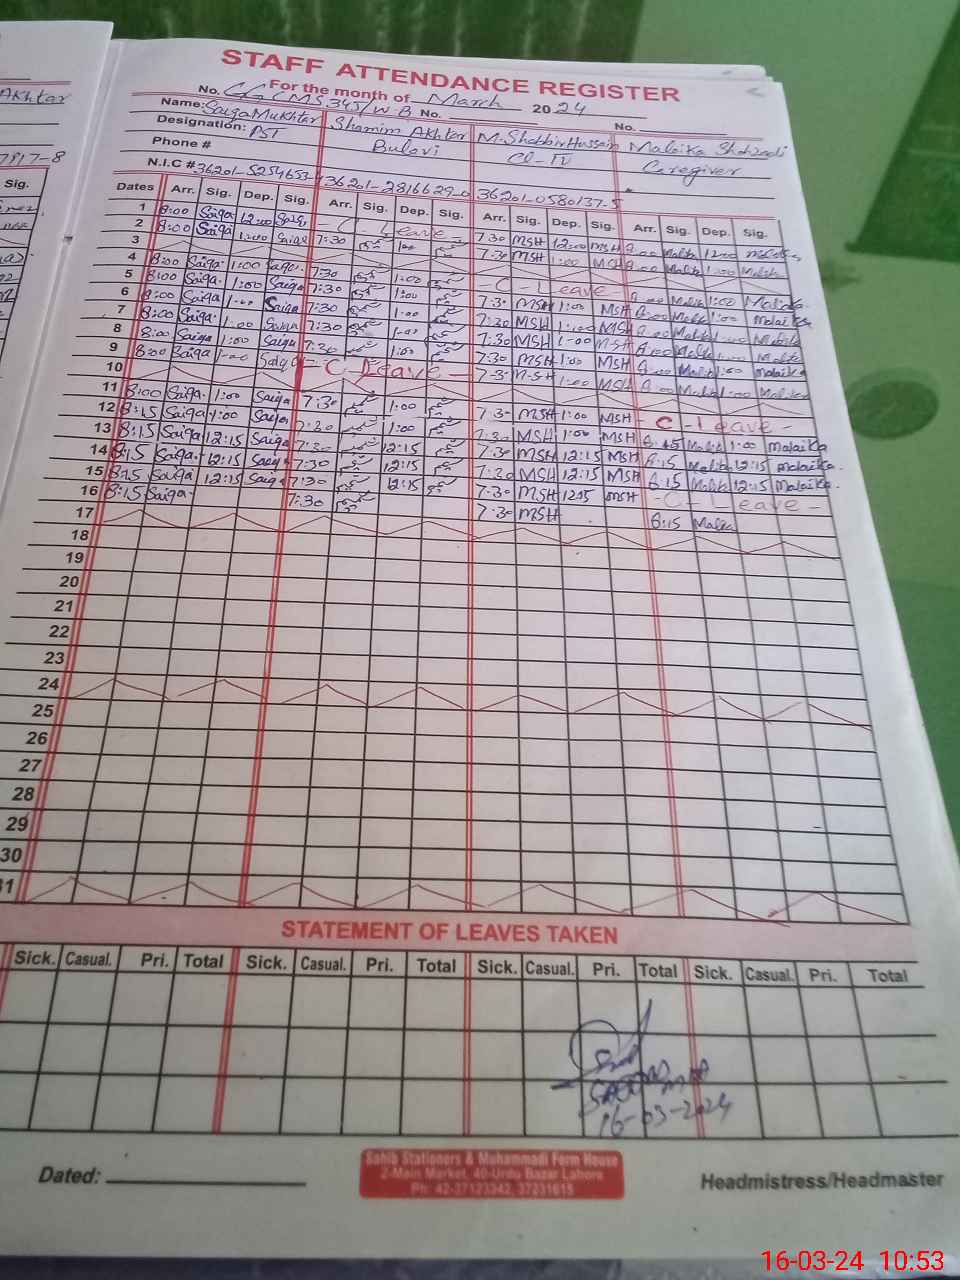 STAFF ATTENDANCE REGISTER
For the month of March 2024
No. GGCMS.345/W-B No. No.
Name: Saiqa Mukhtar Shamim Akhtar M. Shabbir Hussain Malaika Shahzadi
Designation: PST Bulavi Cl-IV Caregiver
Phone #
N.I.C # 36201-5254653- 36201-2816629-0 36201-0580137-5
Dates Arr. Sig. Dep. Sig. Arr. Sig. Dep. Sig. Arr. Sig. Dep. Sig. Arr. Sig. Dep. Sig.
1 8:00 Saiqa 12:00 Saiqa C - Leave 7:30 MSH 12:00 MSH 8:00 Malika 12:00
2 8:00 Saiqa 1:00 Saiqa 7:30 1:00 7:30 MSH 1:00 MSH 8:00 Malika 1:00
3
4 8:00 Saiqa 1:00 Saiqa 7:30 1:00 - C - Leave - 8:00 Malika 1:00 Malaika
5 8:00 Saiqa 1:00 Saiqa 7:30 1:00 7:30 MSH 1:00 MSH 8:00 Malika 1:00 Malaika
6 8:00 Saiqa 1:00 Saiqa 7:30 1:00 7:30 MSH 1:00 MSH 8:00 Malika 1:00
7 8:00 Saiqa 1:00 Saiqa 7:30 1:00 7:30 MSH 1:00 MSH 8:00 Malika 1:00
8 8:00 Saiqa 1:00 Saiqa 7:30 1:00 7:30 MSH 1:00 MSH 8:00 Malika 1:00 Malaika
9 8:00 Saiqa 1:00 Saiqa - C - Leave - 7:30 MSH 1:00 MSH 8:00 Malika 1:00
10
11 8:00 Saiqa 1:00 Saiqa 7:30 1:00 7:30 MSH 1:00 MSH - C - Leave -
12 8:15 Saiqa 1:00 Saiqa 7:30 1:00 7:30 MSH 1:00 MSH 8:15 Malik 1:00 Malaika
13 8:15 Saiqa 12:15 Saiqa 7:30 12:15 7:30 MSH 12:15 MSH 8:15 Malika 12:15 Malaika.
14 8:15 Saiqa 12:15 Saiqa 7:30 12:15 7:30 MSH 12:15 MSH 8:15 Malik 12:15 Malaika.
15 8:15 Saiqa 12:15 Saiqa 7:30 12:15 7:30 MSH 12:15 MSH - C - Leave -
16 8:15 Saiqa 7:30 7:30 MSH 8:15 Malika
17
18
19
20
21
22
23
24
25
26
27
28
29
30
31
STATEMENT OF LEAVES TAKEN
Sick. Casual. Pri. Total Sick. Casual. Pri. Total Sick. Casual. Pri. Total Sick. Casual. Pri. Total
16-03-2024
Dated:
Headmistress/Headmaster
Sahib Stationers & Muhammadi Form House
2-Main Market, 40-Urdu Bazar Lahore
Ph: 42-37123342, 37231615
Akhtar
7817-8
Sig.
16-03-24 10:53